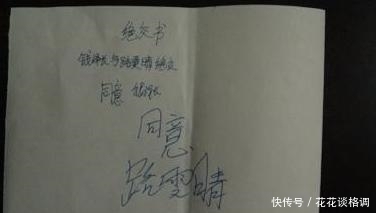 绝交书
与路雯晴绝交
同意
同意
路雯晴
快传号/花花谈格调